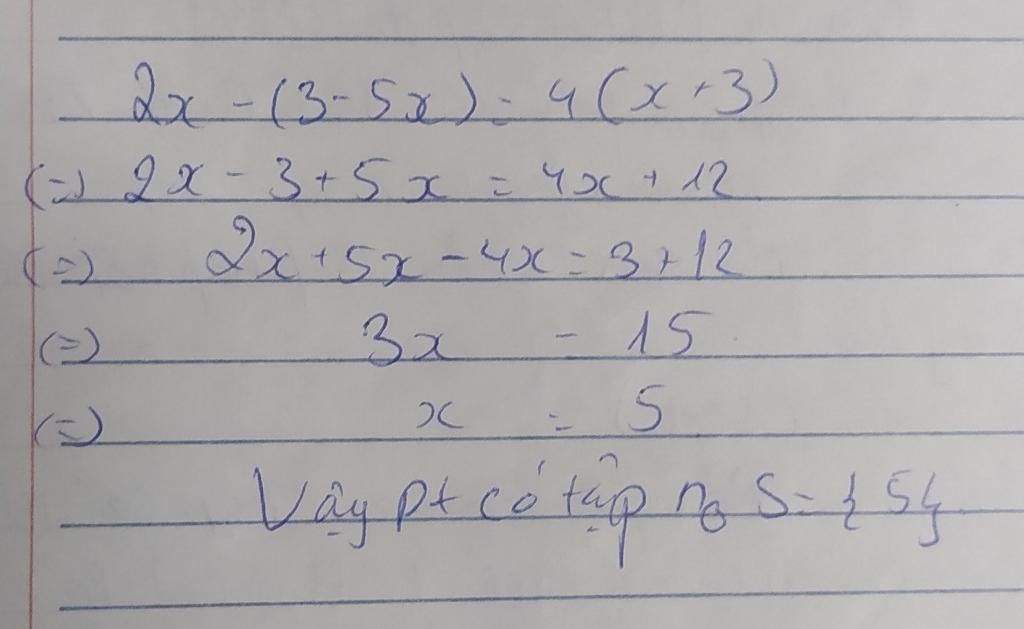 2x - (3 - 5x) = 4(x + 3)
(=) 2x - 3 + 5x = 4x + 12
(=) 2x + 5x - 4x = 3 + 12
(=) 3x = 15
(=) x = 5
Vậy pt có tập no S = {5}